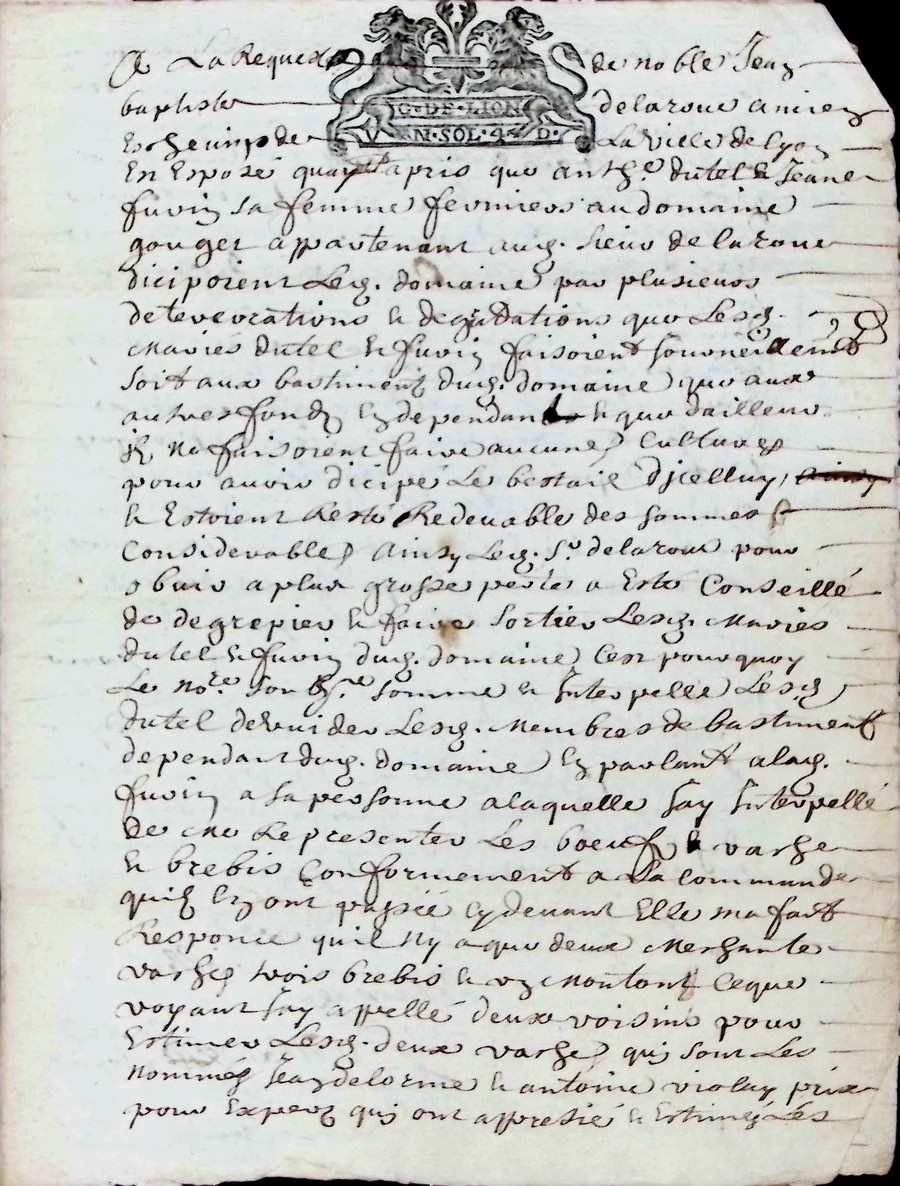 A La Requeste de noble Jean
baptiste delaroue ancien
G·DE·LION
V N·SOL·4·D·
Eschevin de La Ville de lyon
En Exposé quayant apris que anthe dutel & Jeane
furin sa femme fermiers au domaine
gouget appartenant aud. sieur de laroue
dicipoient Led. domaine par plusieurs
deteverations & degradations que Lesd.
Mariés dutel & furin faisoient journeilement
soit aux bastiment dud. domaine que aux
autres fondz en dependant & que dailleurs
ilz ne faisoient faire aucunes Cultures
pour avoir dicipé Le bestail djcelluy,
& Estoient Resté Redevable des sommes
Considerable, Ainsy Led. Sr delaroue pour
obvier a plus grosse perte a Esté Conseillé
de degrepier & faire sortier Lesd. Mariés
dutel & furin dud. domaine Cest pourquoy
Le nore somme & Interpelle Lesd
dutel devuider Lesd. Membres de bastiment
dependant dud. domaine En parlant alad.
furin a sa personne a laquelle Jay Interpellé
de me Representer Les boeufz & vache
& brebis Conformement a La Commande
quilz En ont passée cydevant Elle ma fait
Responce quil Ny a que deux Mechante
vaches trois brebis & un Moutont Ceque
voyant Jay appellé deux voisins pour
Estimer Lesd. deux vaches qui sont Les
Nommés Jean delorme & antoine violay pris
pour Experz qui ont appretié & Estimez Les